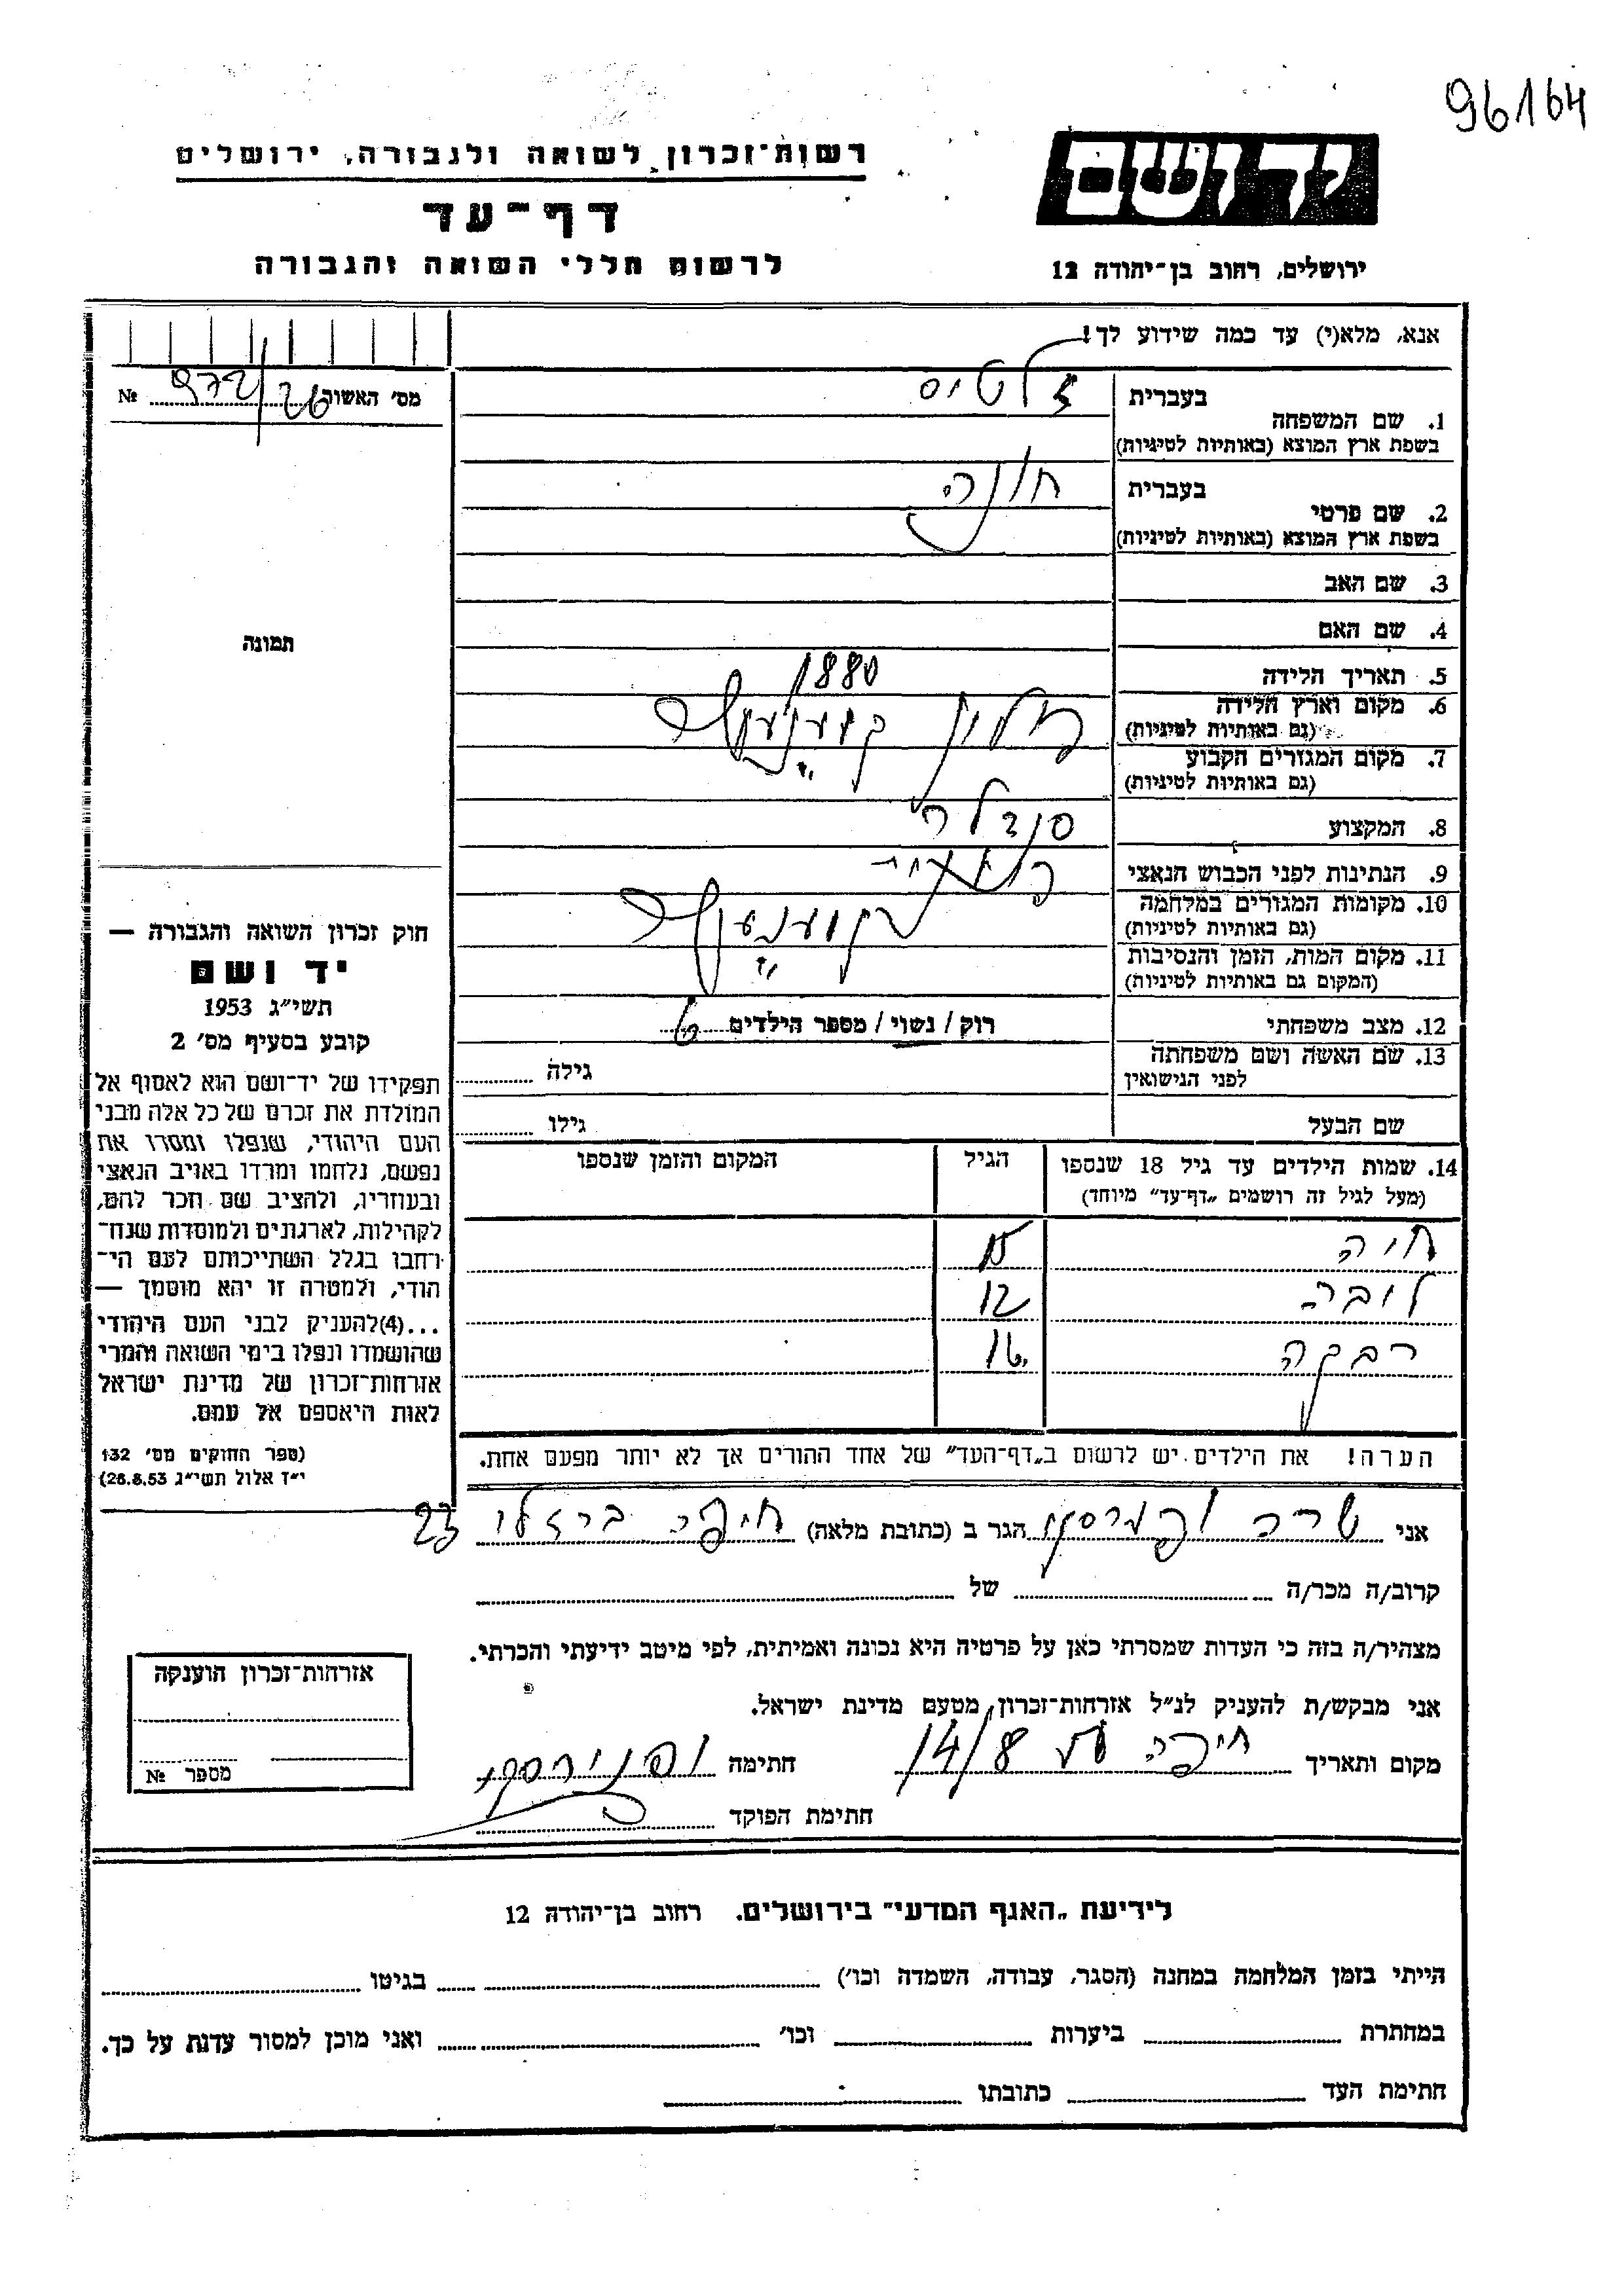 96164
רשות־זכרון לשואה ולגבורה, ירושלים
דף־עד
לרשום חללי השואה והגבורה
יד ושם
ירושלים, רחוב בן־יהודה 12
אנא, מלא(י) עד כמה שידוע לך!
מס׳ האשור 972/26 №
1. שם המשפחה בעברית
בשפת ארץ המוצא (באותיות לטיניות)
2. שם פרטי בעברית חונה
בשפת ארץ המוצא (באותיות לטיניות)
3. שם האב
4. שם האם
5. תאריך הלידה 1880
6. מקום וארץ הלידה
(גם באותיות לטיניות)
7. מקום המגורים הקבוע
(גם באותיות לטיניות)
8. המקצוע סנדלר
9. הנתינות לפני הכבוש הנאצי
10. מקומות המגורים במלחמה
(גם באותיות לטיניות)
11. מקום המות, הזמן והנסיבות
(המקום גם באותיות לטיניות)
12. מצב משפחתי רוק / נשוי / מספר הילדים 6
13. שם האשה ושם משפחתה גילה
לפני הנישואין
שם הבעל גילו
14. שמות הילדים עד גיל 18 שנספו הגיל המקום והזמן שנספו
(מעל לגיל זה רושמים „דף־עד״ מיוחד)
חיה 15
לובה 12
רבקה 16
הערה! את הילדים יש לרשום ב„דף־העד״ של אחד ההורים אך לא יותר מפעם אחת.
תמונה
חוק זכרון השואה והגבורה —
יד ושם
תשי״ג 1953
קובע בסעיף מס׳ 2
תפקידו של יד־ושם הוא לאסוף אל
המולדת את זכרם של כל אלה מבני
העם היהודי, שנפלו ומסרו את
נפשם, נלחמו ומרדו באויב הנאצי
ובעוזריו, ולהציב שם וזכר להם,
לקהילות, לארגונים ולמוסדות שנח־
רחבו בגלל השתייכותם לעם הי־
הודי, ולמטרה זו יהא מוסמך —
...(4)להעניק לבני העם היהודי
שהושמדו ונפלו בימי השואה והמרי
אזרחות־זכרון של מדינת ישראל
לאות היאספם אל עמם.
(ספר החוקים מס׳ 132
י״ז אלול תשי״ג 28.8.53)
אני שרה הגר ב (כתובת מלאה) חיפה ברזלי 23
קרוב/ה מכר/ה של
מצהיר/ה בזה כי העדות שמסרתי כאן על פרטיה היא נכונה ואמיתית, לפי מיטב ידיעתי והכרתי.
אני מבקש/ת להעניק לנ״ל אזרחות־זכרון מטעם מדינת ישראל.
מקום ותאריך חיפה 14/8 חתימה
חתימת הפוקד
אזרחות־זכרון הוענקה
מספר №
לידיעת „האגף המדעי״ בירושלים. רחוב בן־יהודה 12
הייתי בזמן המלחמה במחנה (הסגר, עבודה, השמדה וכו׳) בגיטו
במחתרת ביערות וכו׳ ואני מוכן למסור עדות על כך.
חתימת העד כתובתו